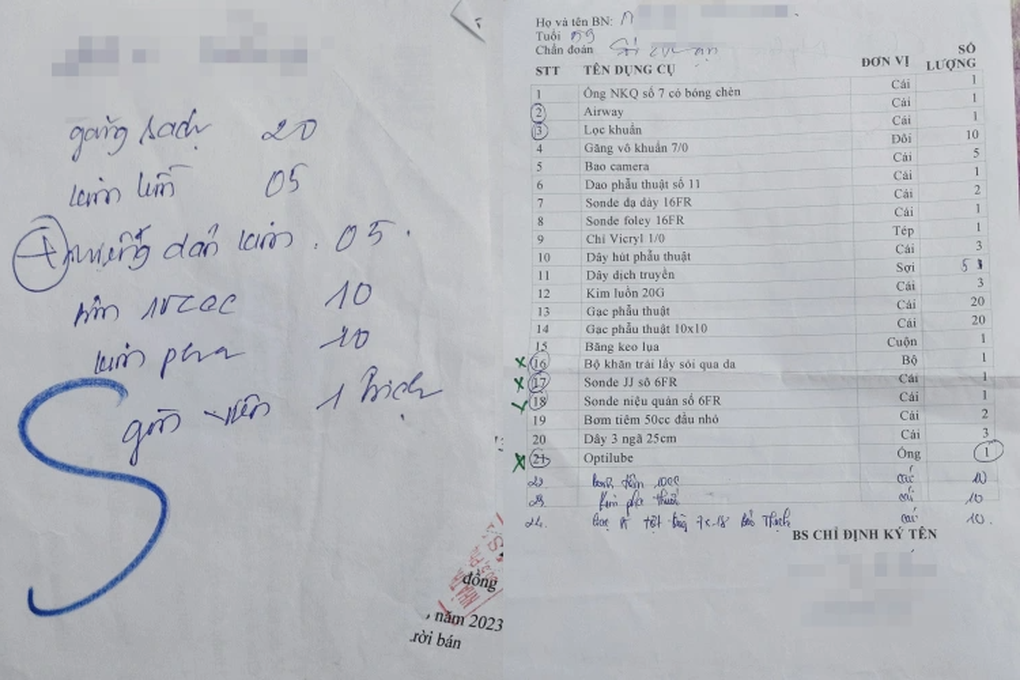 găng sạch 20
05
05.
10
kim pha 10
gòn viên 1 bịch
đồng
, năm 2023
rời bán
Họ và tên BN:
Tuổi 59
Chẩn đoán
STT TÊN DỤNG CỤ ĐƠN VỊ SỐ LƯỢNG
1 Ống NKQ số 7 có bóng chèn Cái 1
2 Airway Cái 1
3 Lọc khuẩn Cái 1
4 Găng vô khuẩn 7/0 Đôi 10
5 Bao camera Cái 5
6 Dao phẫu thuật số 11 Cái 1
7 Sonde dạ dày 16FR Cái 2
8 Sonde foley 16FR Cái 1
9 Chỉ Vicryl 1/0 Tép 1
10 Dây hút phẫu thuật Cái 3
11 Dây dịch truyền Sợi 5
12 Kim luồn 20G Cái 3
13 Gạc phẫu thuật Cái 20
14 Gạc phẫu thuật 10x10 Cái 20
15 Băng keo lụa Cuộn 1
16 Bộ khăn trải lấy sỏi qua da Bộ 1
17 Sonde JJ số 6FR Cái 1
18 Sonde niệu quản số 6FR Cái 1
19 Bơm tiêm 50cc đầu nhỏ Cái 2
20 Dây 3 ngã 25cm Cái 3
21 Optilube Ống 1
22 bơm tiêm 10cc cái 10
23 Kim pha thuốc cái 10
24 cái 10.
BS CHỈ ĐỊNH KÝ TÊN